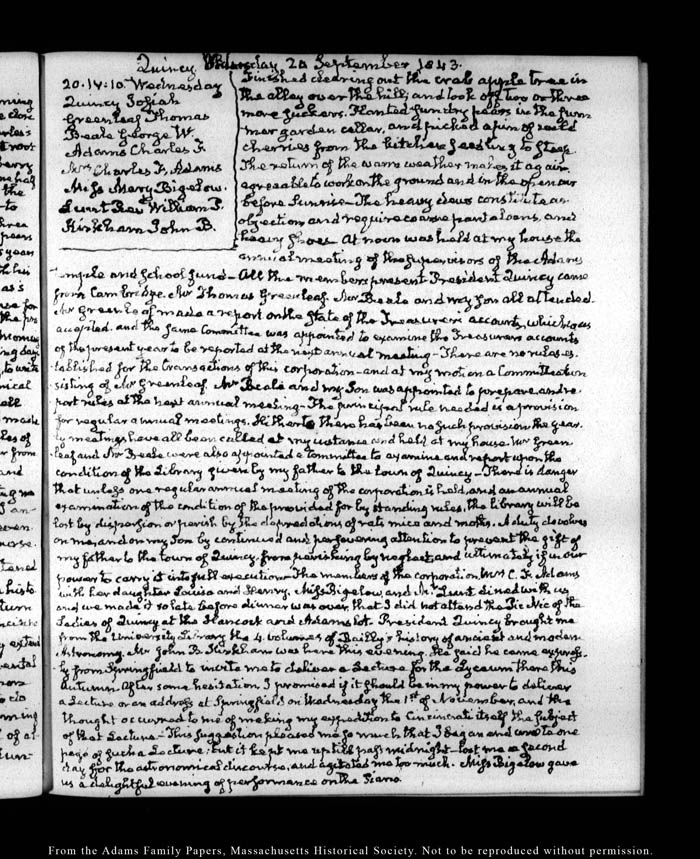 Quincy Wednesday 20 September 1843.
20. IV:10. Wednesday
Quincy Josiah
Greenleaf Thomas
Beale George W.
Adams Charles F.
Mrs Charles F. Adams
Miss Mary Bigelow.
Lunt Revd William P.
Kirkham John B.
Finished clearing out the crab apple tree in
the alley over the hill; and took off two or three
more suckers. Planted sundry pears in the
garden cellar, and picked a pun of
cherries from the kitchen seedling to steep.
The return of the warm weather makes it again
agreeable to work on the ground and in the open air
before Sunrise. The heavy dews constitute an
objection and require coarse pantaloons, and
heavy shoes. At noon was held at my house the
annual meeting of the Supervisors of the Adams
Temple and School fund. All the members present. President Quincy came
from Cambridge. Mr Thomas Greenleaf, Mr Beale and my Son all attended.
Mr Greenleaf made a report on the State of the Treasurer's accounts, which was
accepted. and the same Committee was appointed to examine the Treasurers accounts
of the present year to be reported at the next annual meeting. There are no rules es-
tablished for the transactions of this corporation and at my motion a Committee con
sisting of Mr Greenleaf Mr Beale and my Son was appointed to prepare, and re-
port rules at the next annual meeting. The principal rule needed is a provision
for regular annual meetings. Hitherto there has been no such provision the year-
ly meetings have all been called at my instance and held at my house. Mr Green
leaf and Mr Beale were also appointed a Committee to examine and report upon the
condition of the Library given by my father to the town of Quincy. There is danger
that unless one regular annual meeting of the corporation is held, and an annual
examination of the condition of the provided for by standing rules, the library will be
lost by dispersion or perish by the depredations of rats mice and moths. A duty devolves
on me, and on my Son by continued and persevering attention to prevent the gift of
my father to the town of Quincy, from perishing by neglect, and ultimately if in our
power to carry it into full execution. The members of the corporation, Mrs C. F. Adams
with her daughter Louisa and Henry, Miss Bigelow and Mr Lunt dined with us
and we made it so late before dinner was over, that I did not attend the Pic Nic of the
Ladies of Quincy at the Hancock and Adams lot. President Quincy brought me
from the University Library the 4 volumes of Bailly's history of ancient and modern
Astronomy. Mr John B. Kirkham was here this evening. He said he came express-
ly from Springfield to invite me to deliver a Lecture for the Lyceum there this
Autumn. After some hesitation, I promised if it should be in my power to deliver
a Lecture or an address at Springfield on Wednesday the 1st of November, and the
thought occurred to me of making my expedition to Cincinnati itself the subject
of that Lecture. This suggestion pleased me so much that I began and wrote one
page of such a Lecture; but it kept me up till past midnight lost me a second
day for the astronomical discourse, and agitated me too much. Miss Bigelow gave
us a delightful evening of performance on the Piano.
From the Adams Family Papers, Massachusetts Historical Society. Not to be reproduced without permission.